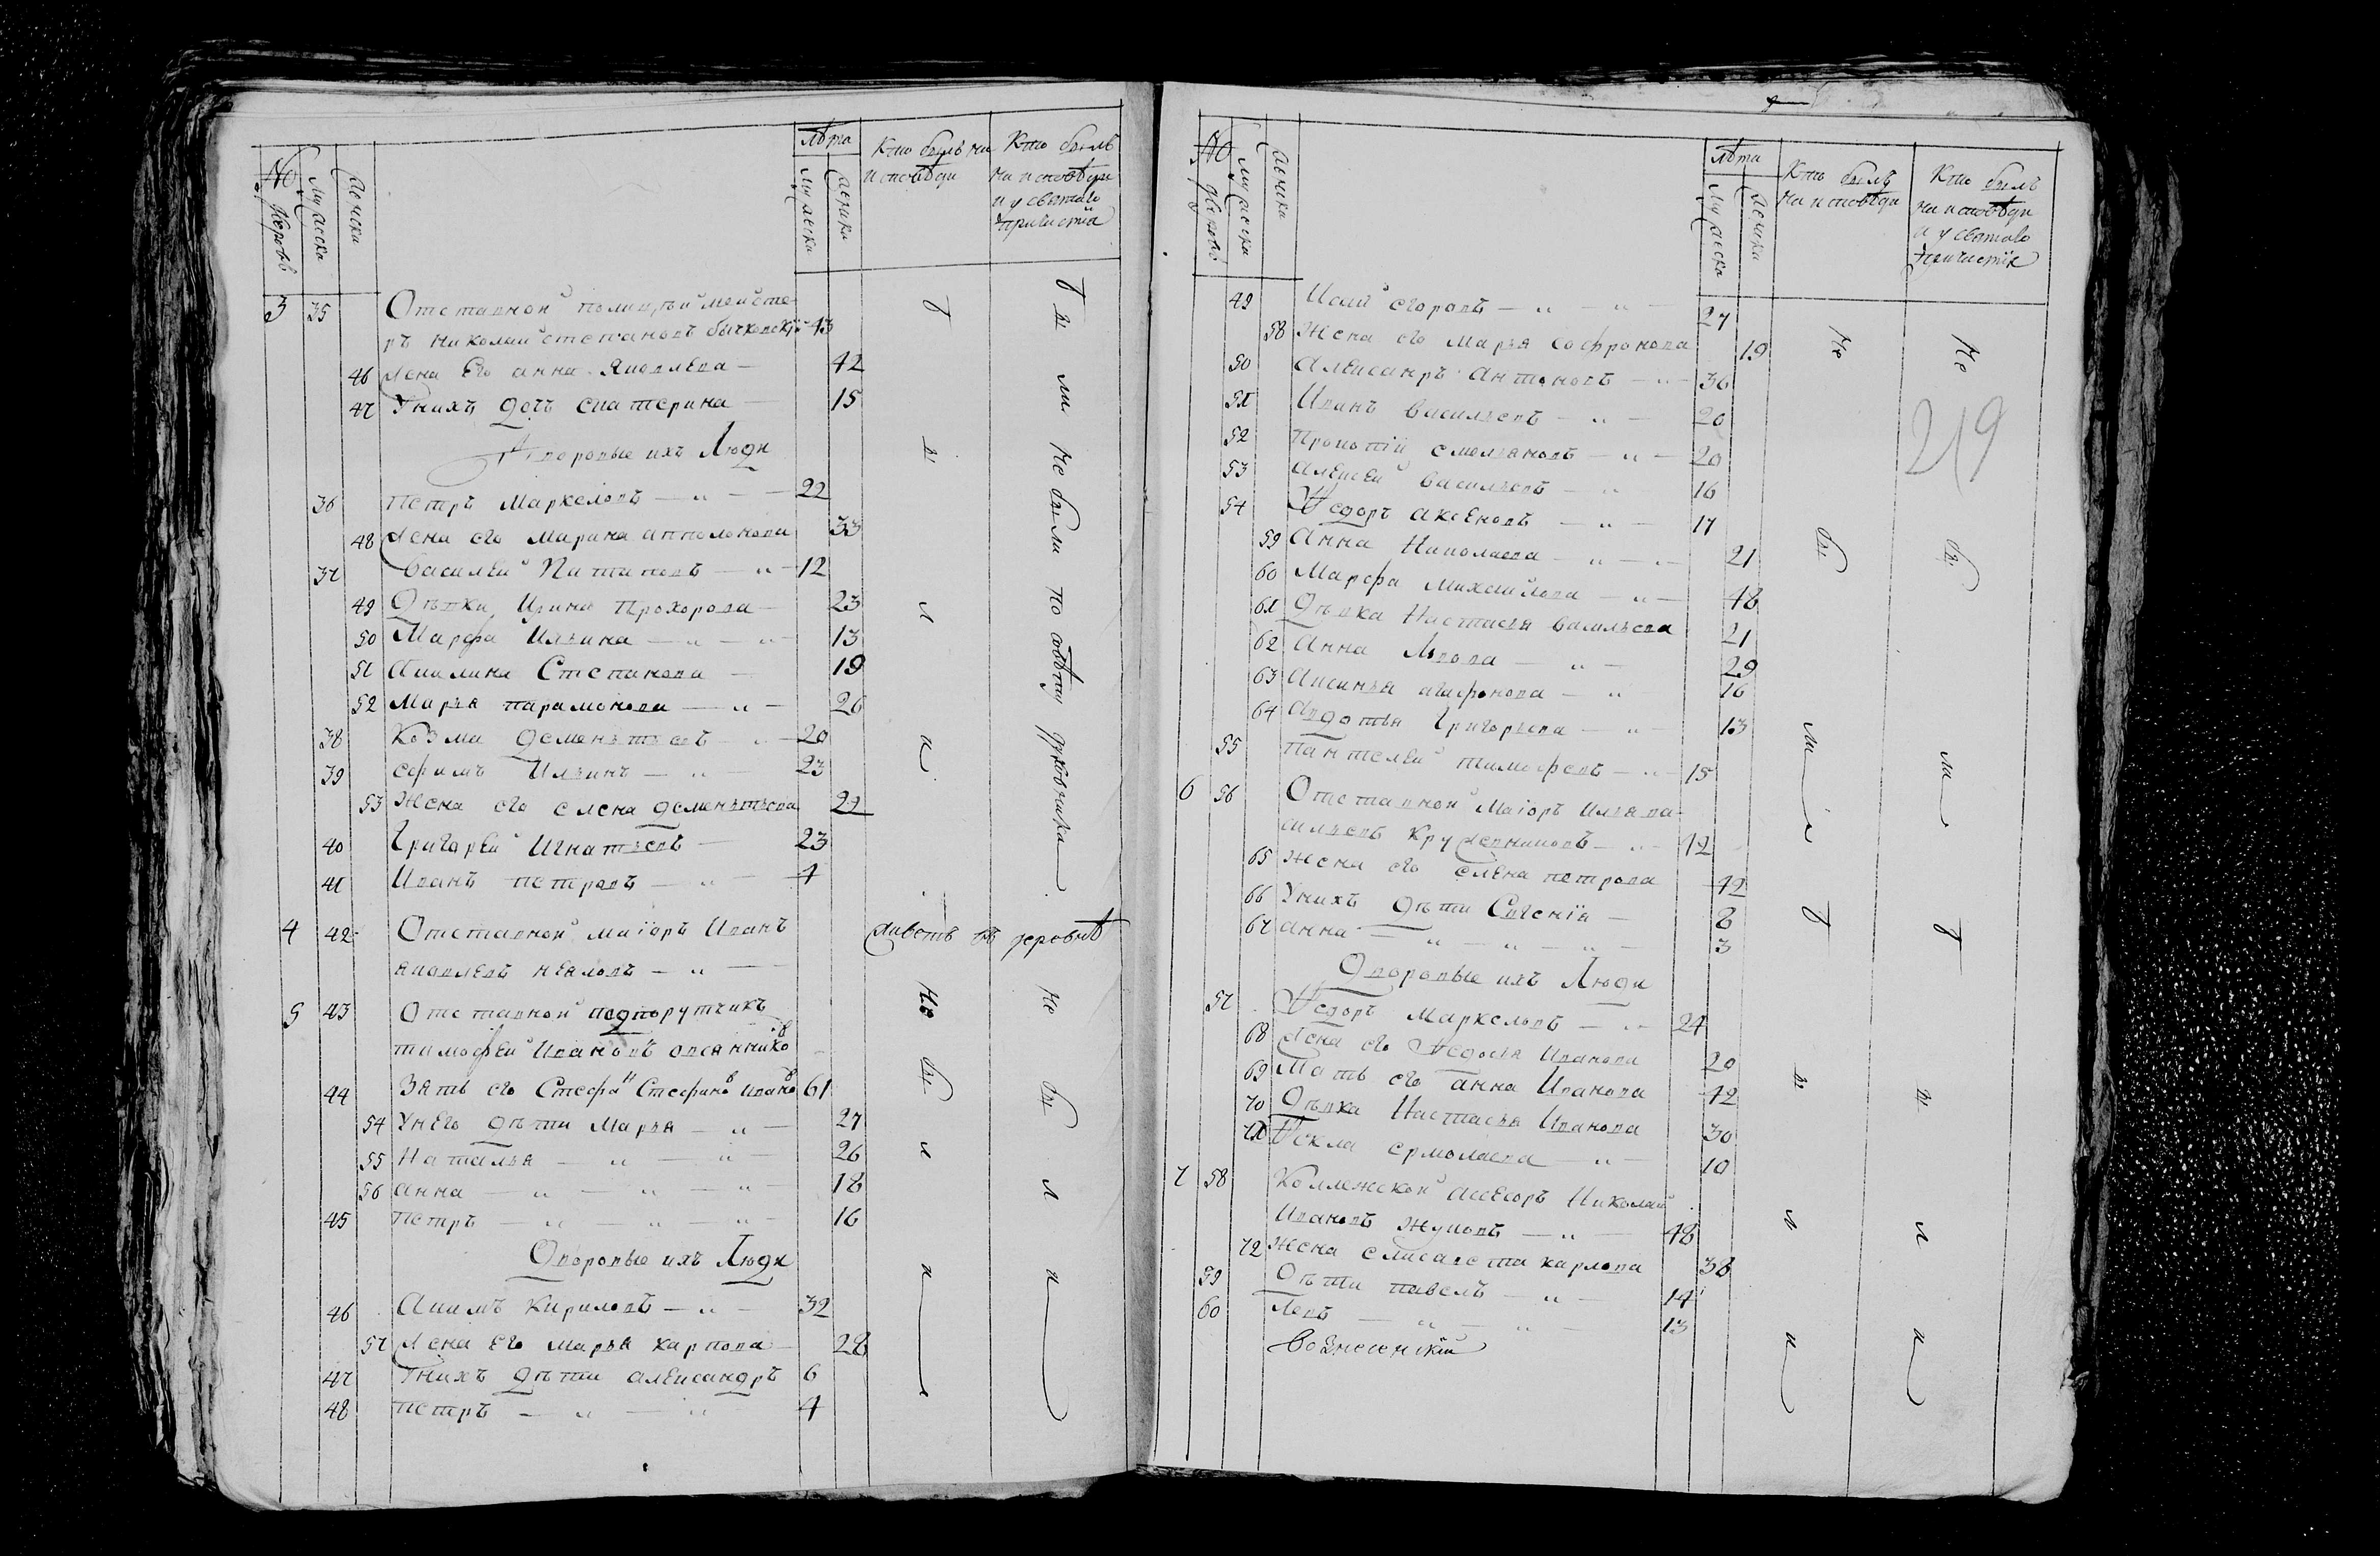 № дворовъ мужеска женска лѣта мужеска женска Кто былъ на исповѣди Кто былъ на исповѣди и у святаго причастія
3 35 Отставной полицѣймейсте-
ръ Николай степановъ бычковскій 43
46 Жена Его анна Яковлева — 42
47 Унихъ дочь екатерина — 15
Дворовые ихъ Люди
36 Петръ Маркеловъ — „ — 22
48 Жена его Марина апполонова 33
37 василей Патаповъ — „ — 12
49 Дѣвки Ирина Прохорова — 23
50 Марфа Ильина — „ — „ — 13
51 Акилина Степанова — 19
52 Марья парамонова — „ — 26
38 Козма дементьевъ — „ — 20
39 ефимъ Ильинъ — „ — 23
53 Жена его елена дементьева 22
40 Григорей Игнатьевъ — 23
41 Иванъ петровъ — „ — 4
Были не были по совѣту духовника
4 42 Отставной маіоръ Иванъ
яковлевъ нѣяловъ — „ —
живетъ въ деревнѣ
5 43 Отставной подпорутчикъ
тимофей Ивановъ овсяннико в
44 Зять его Стефан Стефанов Иванов 61
54 Унего дѣти Марья — „ — 27
55 Наталья — „ — „ — 26
56 анна — „ — „ — „ — 18
45 петръ — „ — „ — „ — 16
Дворовые ихъ Люди
46 Акимъ Кириловъ — „ — 32
57 Жена Его Марья карпова 28
47 Унихъ дѣти александръ 6
48 петръ — „ — „ — 4
не были
не были
№ дворовъ мужеска женска лѣта мужеска женска Кто былъ на исповѣди Кто былъ на исповѣди и у святаго причастія
219
49 Исай егоровъ — „ — „ — 27
58 Жена его Марья Софронова 19
50 Александръ антоновъ — „ — 36
51 Иванъ васильевъ — „ — 20
52 Прокопій емельяновъ — „ — 20
53 алексей васильевъ — „ — 16
54 Ѳедоръ аксеновъ — „ — 17
59 анна Николаева — „ — „ — 21
60 Марфа михайлова — „ — 48
61 дѣвка Настасья васильева 21
62 анна Львова — „ — 29
63 аксинья агафонова — „ — 16
64 авдотья Григорьева — „ — 13
55 пантелей тимофеевъ — „ — 15
6 56 Отставной Маіоръ Илья ва-
сильевъ Кружевниковъ — „ — 42
65 Жена его елена петрова 42
66 Унихъ дѣти Евгенія — 8
67 анна — „ — „ — „ — 3
Дворовые ихъ Люди
57 Ѳедоръ Маркеловъ — „ — 24
68 Жена его Ѳедосья Иванова 20
69 Мать его анна Иванова 42
70 Дѣвка Настасья Иванова 30
71 Ѳекла ермолаева — „ — 10
7 58 Коллежской ассесоръ Николай
Ивановъ Жуковъ — „ — 48
72 Жена елисавета карлова 38
59 Дѣти павелъ — „ — 14
60 Левъ — „ — „ — 13
Вознесенскій
не были
не были
были
были